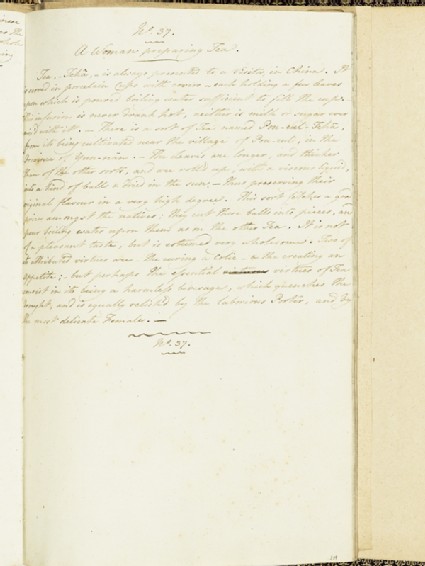 No. 37.
A Woman preparing Tea.
Tea, Tcha, is always presented to a visitor, in China. It
is served in porcelain cups with covers — each holding a few leaves
upon which is poured boiling water sufficient to fill the cup.
The infusion is never drank hot, neither is milk or sugar ever
used with it. — There is a sort of Tea named
from its being cultivated near the village of in the
province of — The leaves are longer, and thicker
than of the other sorts, and are rolled up, with a viscous liquid,
into a kind of balls & dried in the sun; — thus preserving their
original flavour in a very high degree. This sort takes a
amongst the natives; they cut these balls into pieces, and
pour boiling water upon them as on the other Tea. It is not
of a pleasant taste, but is esteemed very wholesome. Two of
its attributed virtues are the curing a colic — & the creating an
appetite; — but perhaps the essential virtues of Tea
consist in its being a harmless beverage, which quenches the
and is equally relished by the laborious Porter, and by
the most delicate Female. —
No. 37.